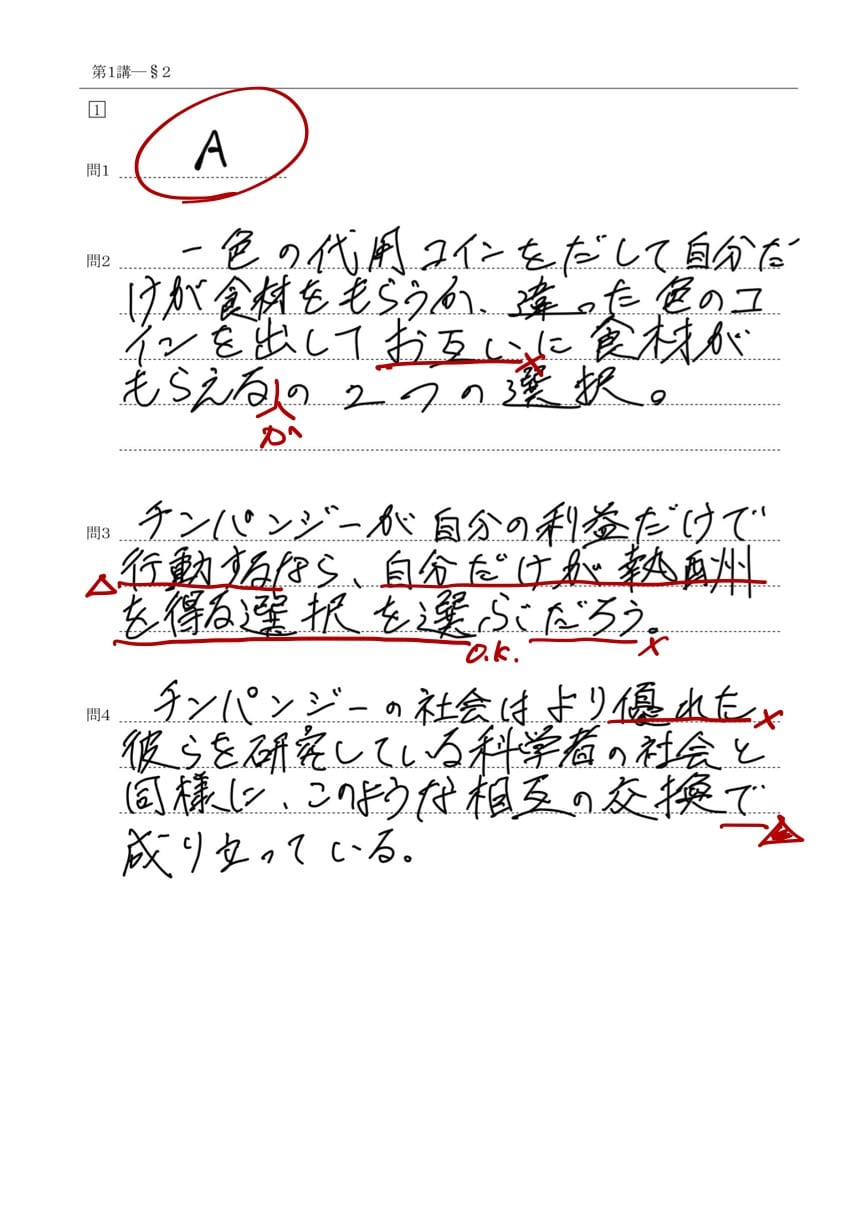 第1講―§2
1
A
問1
問2 一色の代用コインをだして自分だ
けが食材をもらうか、違った色のコ
インを出してお互いに食材が
もらえるの2つの選択。
か
問3 チンパンジーが自分の利益だけで
行動するなら、自分だけが報酬
を得る選択を選ぶだろう。
o.k.
問4 チンパンジーの社会はより優れた
彼らを研究している科学者の社会と
同様に、このような相互の交換で
成り立っている。